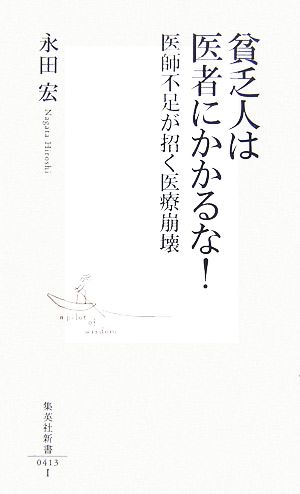 貧乏人は
医者にかかるな！
医師不足が招く医療崩壊
永田 宏
Nagata Hiroshi
a pilot of
wisdom
集英社新書
0413
I